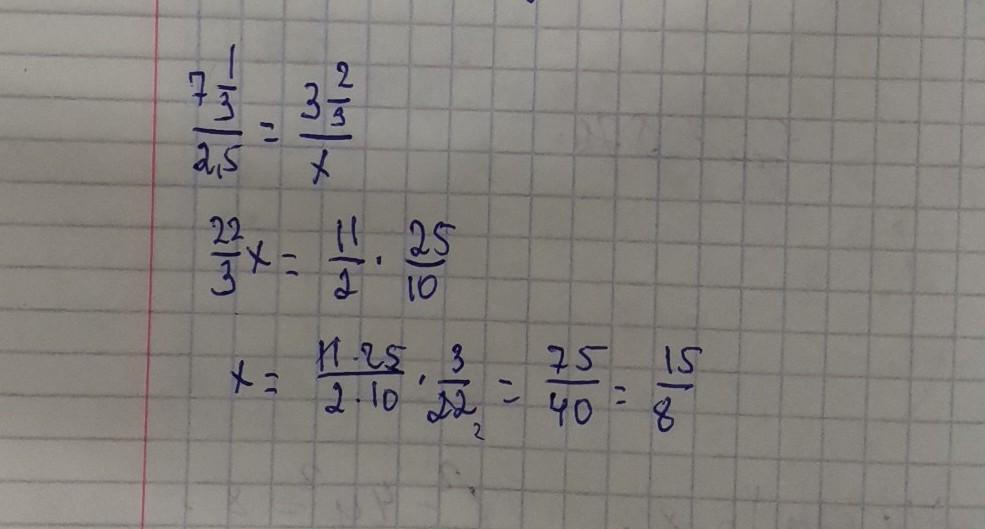 7 1/3 / 2,5 = 3 2/3 / x
22/3 x = 11/2 · 25/10
x = 11·25 / 2·10 · 3/22 2 = 75/40 = 15/8